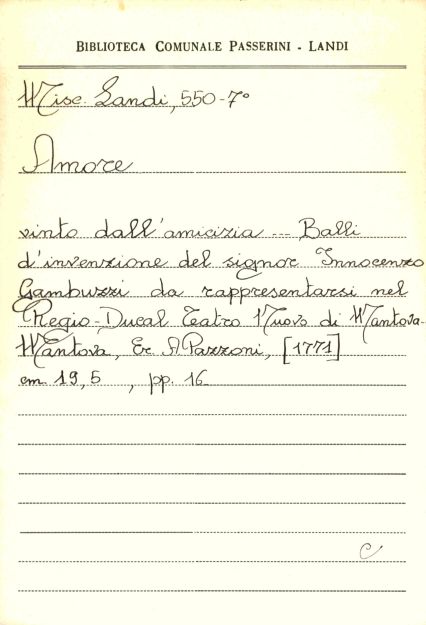 BIBLIOTECA COMUNALE PASSERINI - LANDI
Misc. Landi, 550-7°
Amore
vinto dall'amicizia --- Balli
d'invenzione del signor Innocenzo
Gambuzzi da rappresentarsi nel
Regio-Ducal Teatro Nuovo di Mantova-
Mantova, Er. A Pazzoni, [1771]
cm 19,5 , pp. 16
C